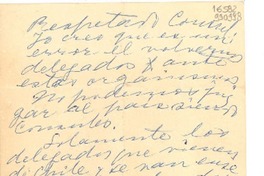 16582
Respetado Consul:
Yo creo que es un
error el volvernos
delegados X ante
estos organismos
No podemos ju-
gar al país siendo
Consules.
Solamente los
delegados que vienen
de Chile y se van